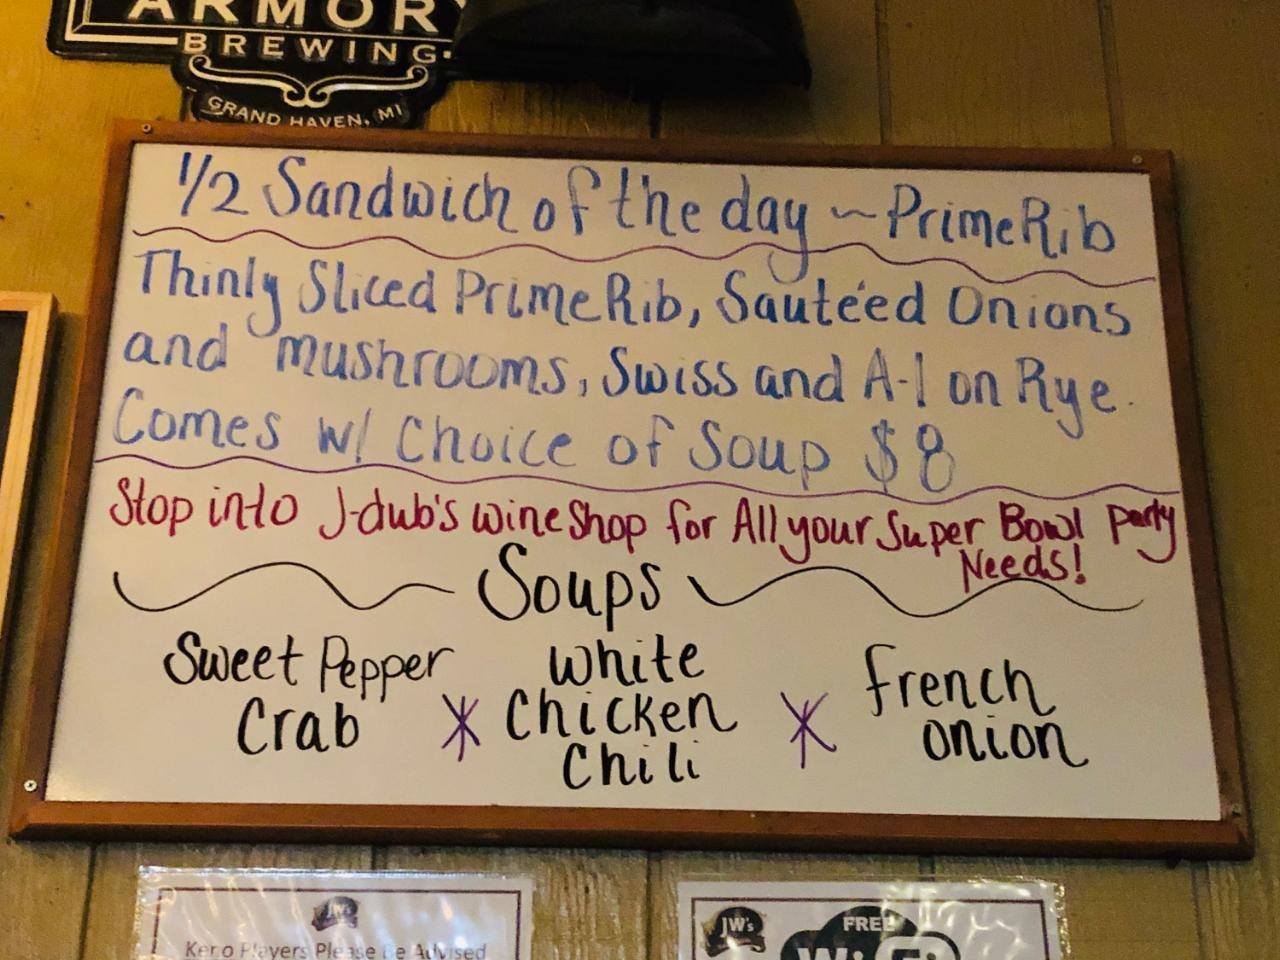 ARMORY
BREWING
GRAND HAVEN, MI
1/2 Sandwich of the day ~ Prime Rib
Thinly Sliced Prime Rib, Sautéed Onions
and mushrooms, Swiss and A-1 on Rye.
Comes w/ Choice of Soup $8
Stop into J-dub's wine Shop for All your Super Bowl Party
Needs!
Soups
Sweet Pepper
Crab
*
White
Chicken
Chili
*
French
Onion
JW's
Keno Players Please Be Advised
JW's
FREE
Wi-Fi